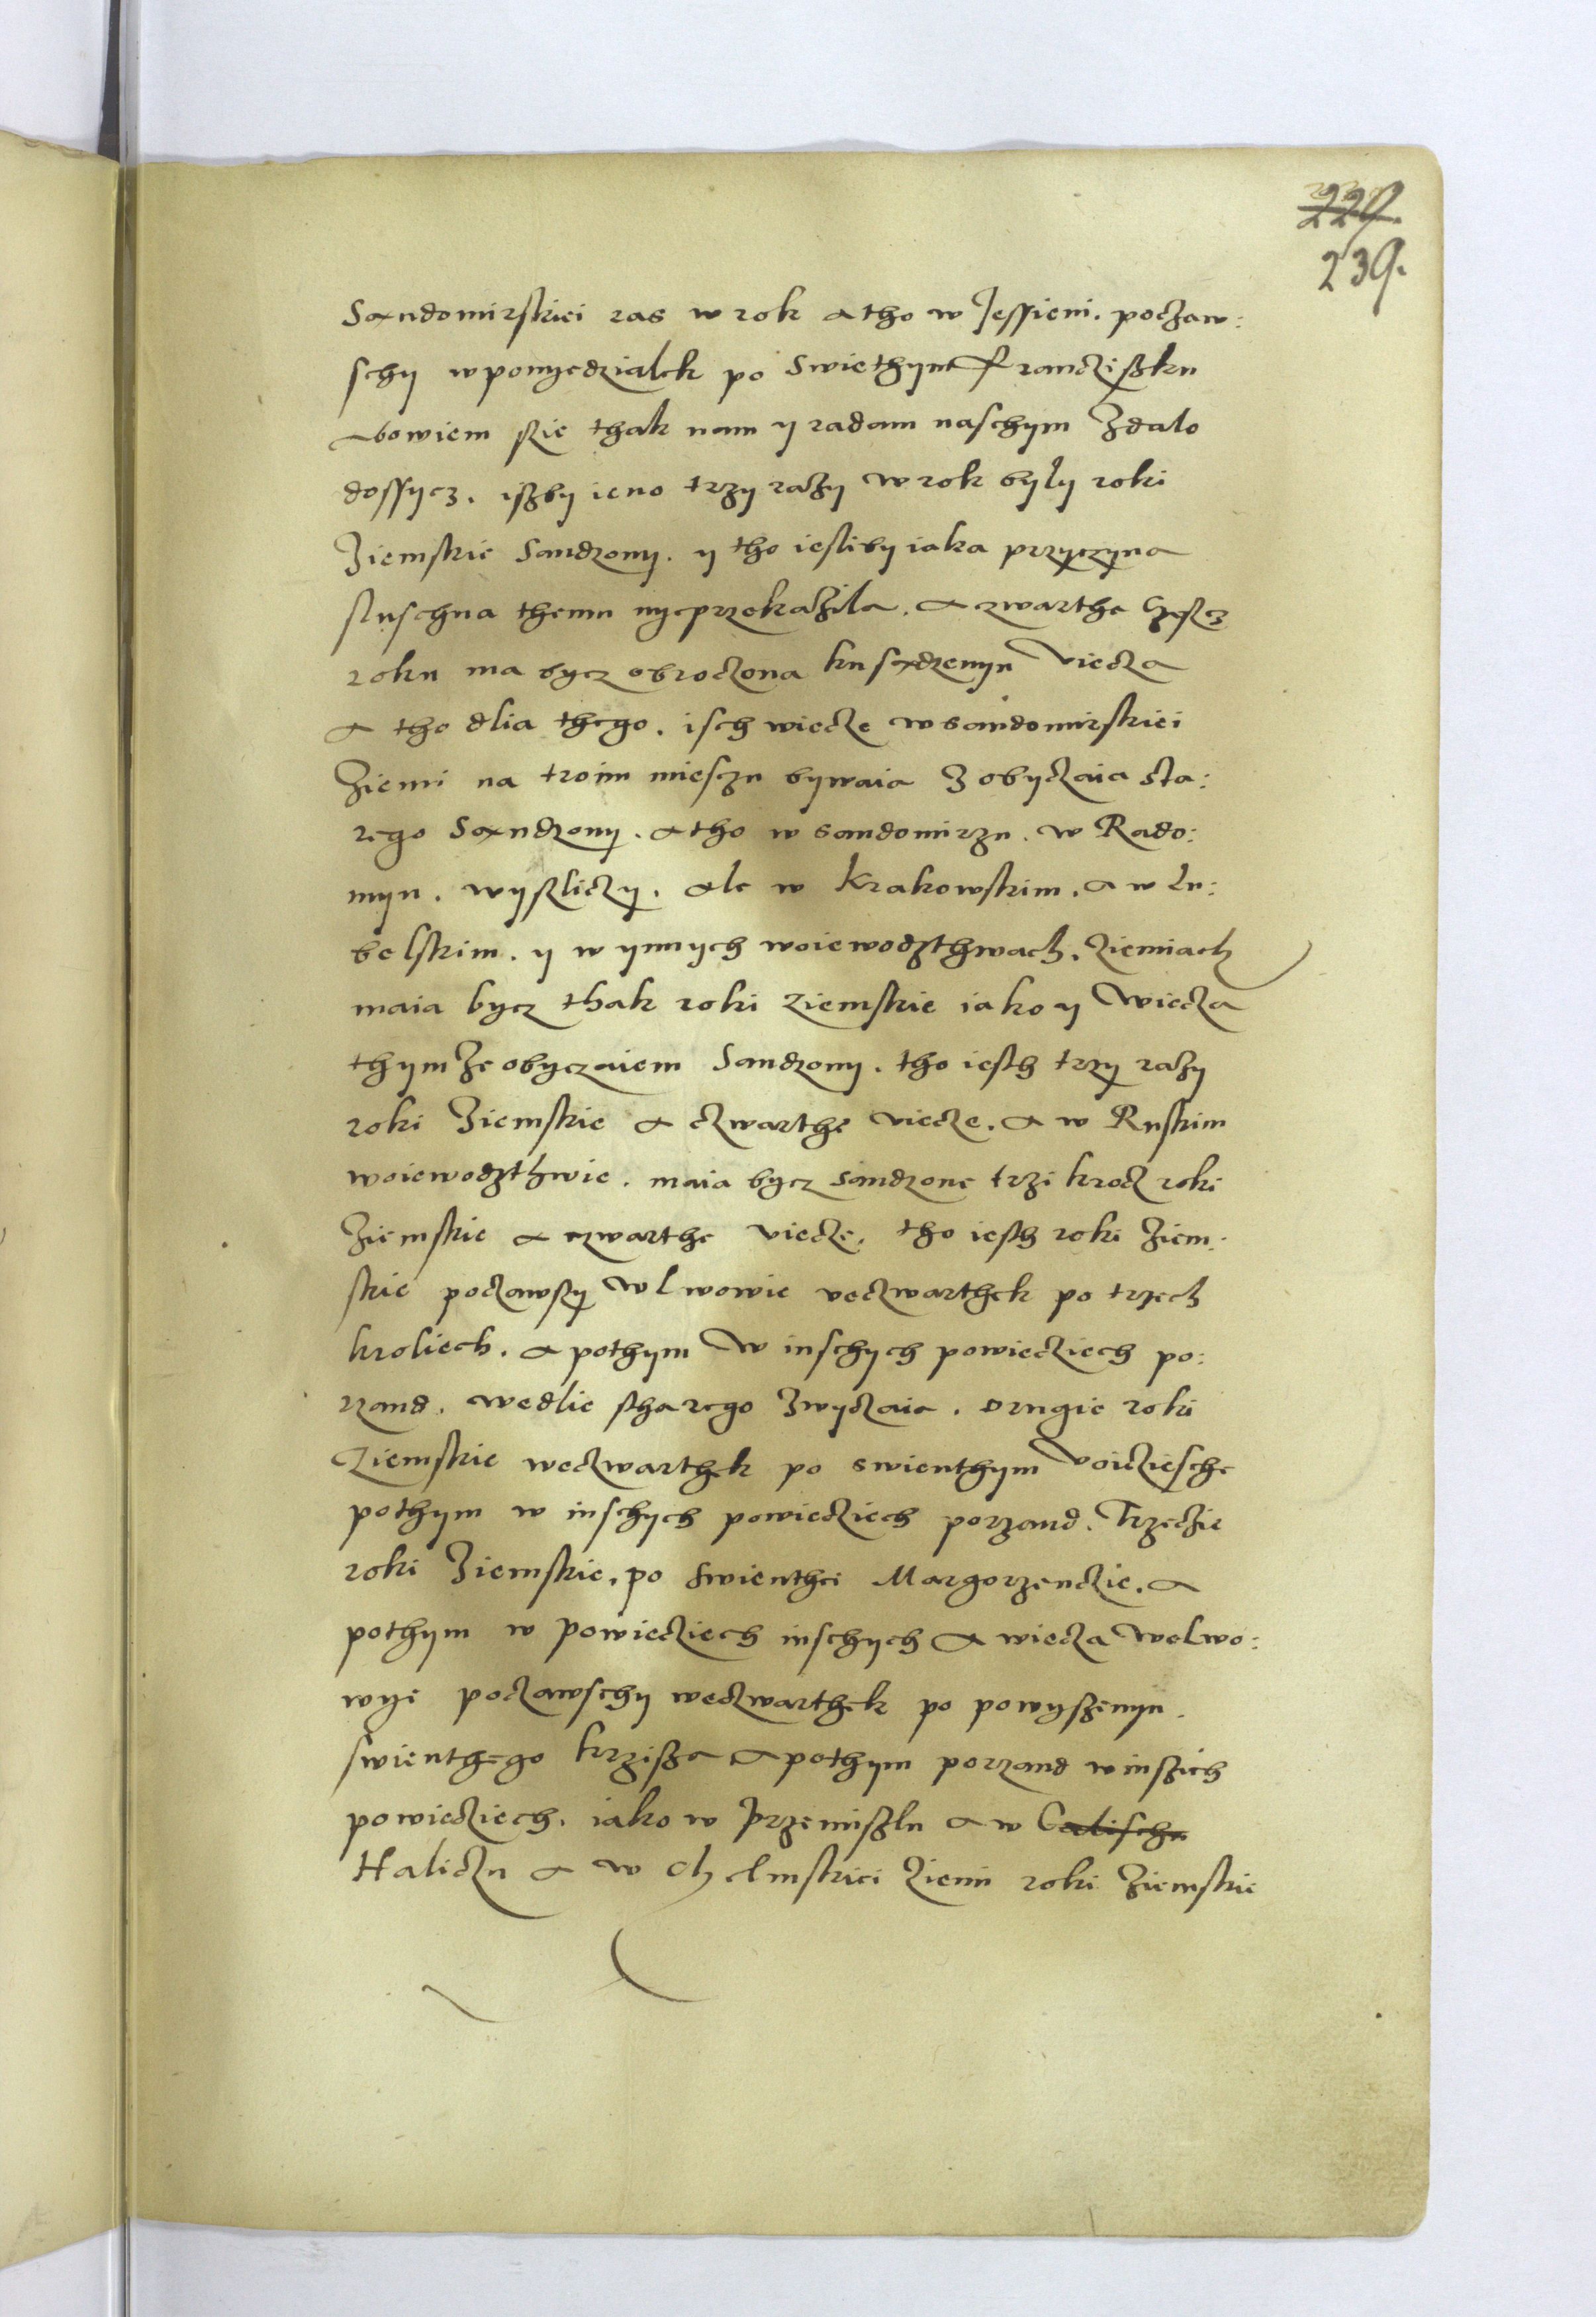 229.
239.
Sandomirskiei ras w rok a tho w Jessieni. poczaw:
schy w ponyedzialek po Swiethym Franciszku
abowiem sie thak nam y radam naschym zdalo
dossycz. iszby ieno trzy razy w rok były roki
Ziemskie Sandzony. y tho iesliby iaka przyczyna
sluschna themu nyeprzekazila. a czwartha częscz
roku ma bycz obroczona ku sadzenyu viecza
a tho dlia thego. isch wiecze w Sandomirskiei
Ziemi na troim mieszczu bywaia z obyczaia sta:
rego Sandzony. a tho w Sandomirzu. w Rado:
myu. wysliczy. ale w Krakowskim. a w Lu:
belskim. y w ynnych woiewodzthwach. Ziemiach
maia bycz thak roki ziemskie iako y wiecza
thymze obyczaiem Sandzony. tho iesth trzy razy
roki Ziemskie a czwarthe viecze. a w Ruskim
woiewodzthwie. maia bycz sandzone trzi krocz roki
Ziemskie a czwarthe viecze. tho iesth roki Ziem:
skie poczawszy w Lwowie veczwarthek po trzech
kroliech. a pothym w inschych powieciech po:
rzand. wedlie stharego zwyczaia. Drugie roki
Ziemskie weczwarthek po swienthym voicziesche
pothym w inschych powieciech porzand. Trzeczie
roki Ziemskie. po Swienthei Margorzenczie. a
pothym w powieciech inschych a wiecza we Lwo:
wye poczawschy weczwarthek po powyszenyu.
swienthego krzisza a pothym porzand w inszich
powieciech. iako w Przemiszlu a w Calischu
Haliczu a w Chelmskiei Ziemi roki Ziemskie